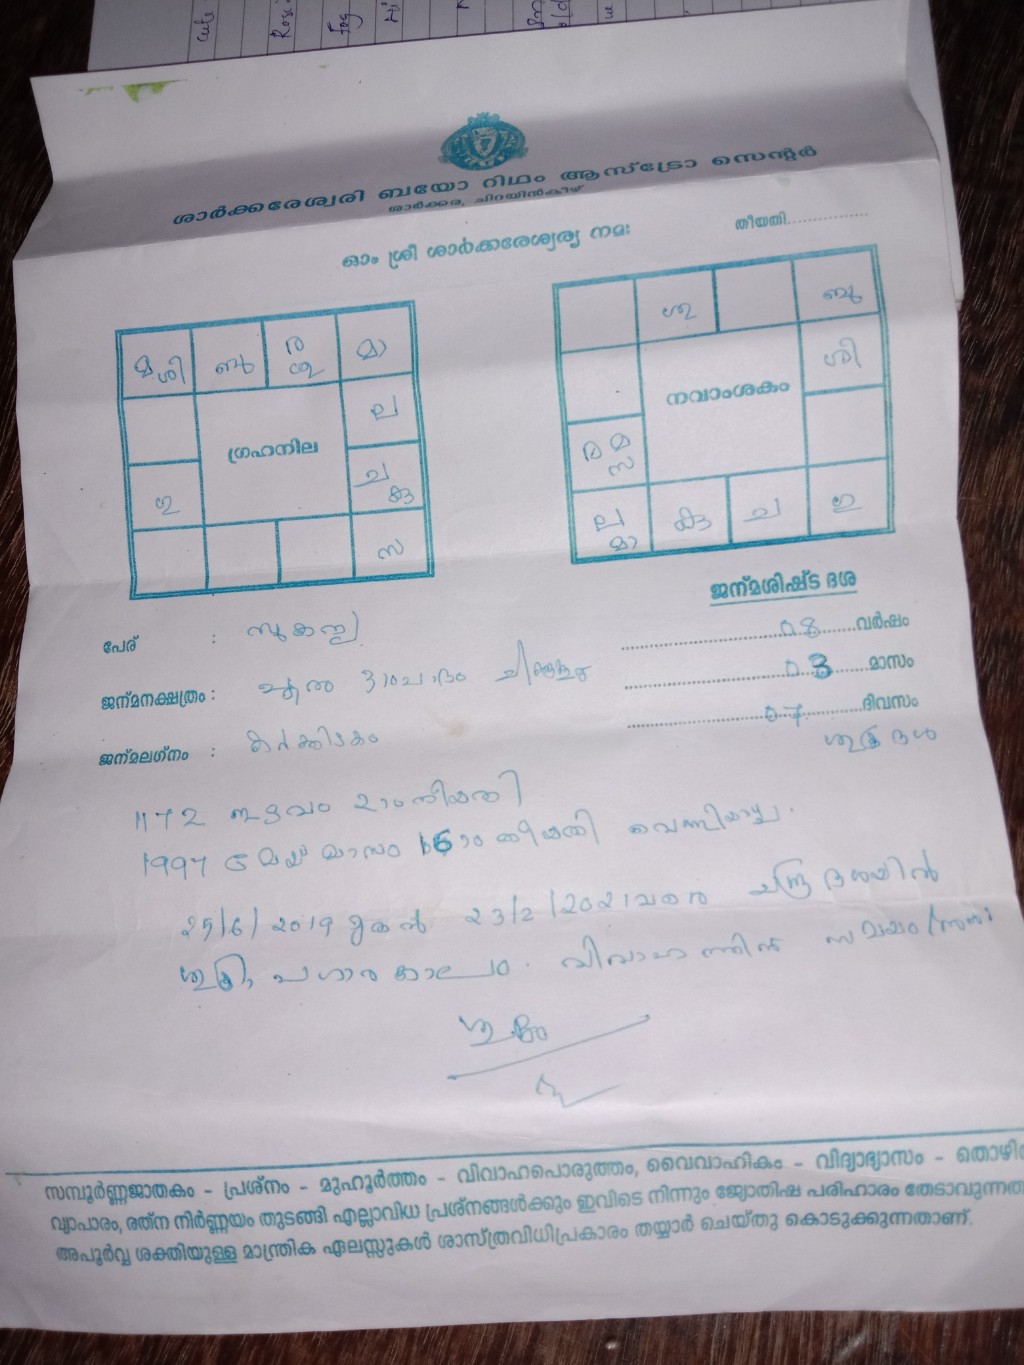 ശാർക്കരേശ്വരി ബയോ റിഥം ആസ്ട്രോ സെന്റർ
ശാർക്കര, ചിറയിൻകീഴ്
ഓം ശ്രീ ശാർക്കരേശ്വര്യ നമഃ
തീയതി................
മ ശി ബു ര ശു മാ
ല
ഗ്രഹനില
ച കു
ഗു
സ
ശു ബു
ശി
നവാംശകം
ര മ സ
ല മാ കു ച ഗു
ജന്മശിഷ്ട ദശ
പേര് : സുകന്യ
08 വർഷം
ജന്മനക്ഷത്രം : പൂരം
08 മാസം
ജന്മലഗ്നം : കർക്കിടകം
07 ദിവസം
ശുക്ര ദശ
1172 ഇടവം 2ാം തീയതി
1997 മേയ് മാസം 16ാം തീയതി വെള്ളിയാഴ്ച.
25/6/2019 മുതൽ 23/2/2021 വരെ ചന്ദ്ര ദശയിൽ
ശുക്ര അപഹാരകാലം. വിവാഹത്തിന് സമയം
ശുഭം
സമ്പൂർണ്ണജാതകം - പ്രശ്നം - മുഹൂർത്തം - വിവാഹപൊരുത്തം, വൈവാഹികം - വിദ്യാഭ്യാസം -
വ്യാപാരം, രത്ന നിർണ്ണയം തുടങ്ങി എല്ലാവിധ പ്രശ്നങ്ങൾക്കും ഇവിടെ നിന്നും ജ്യോതിഷ പരിഹാരം
അപൂർവ്വ ശക്തിയുള്ള മാന്ത്രിക ഏലസ്സുകൾ ശാസ്ത്രവിധിപ്രകാരം തയ്യാർ ചെയ്തു കൊടുക്കുന്നതാണ്.